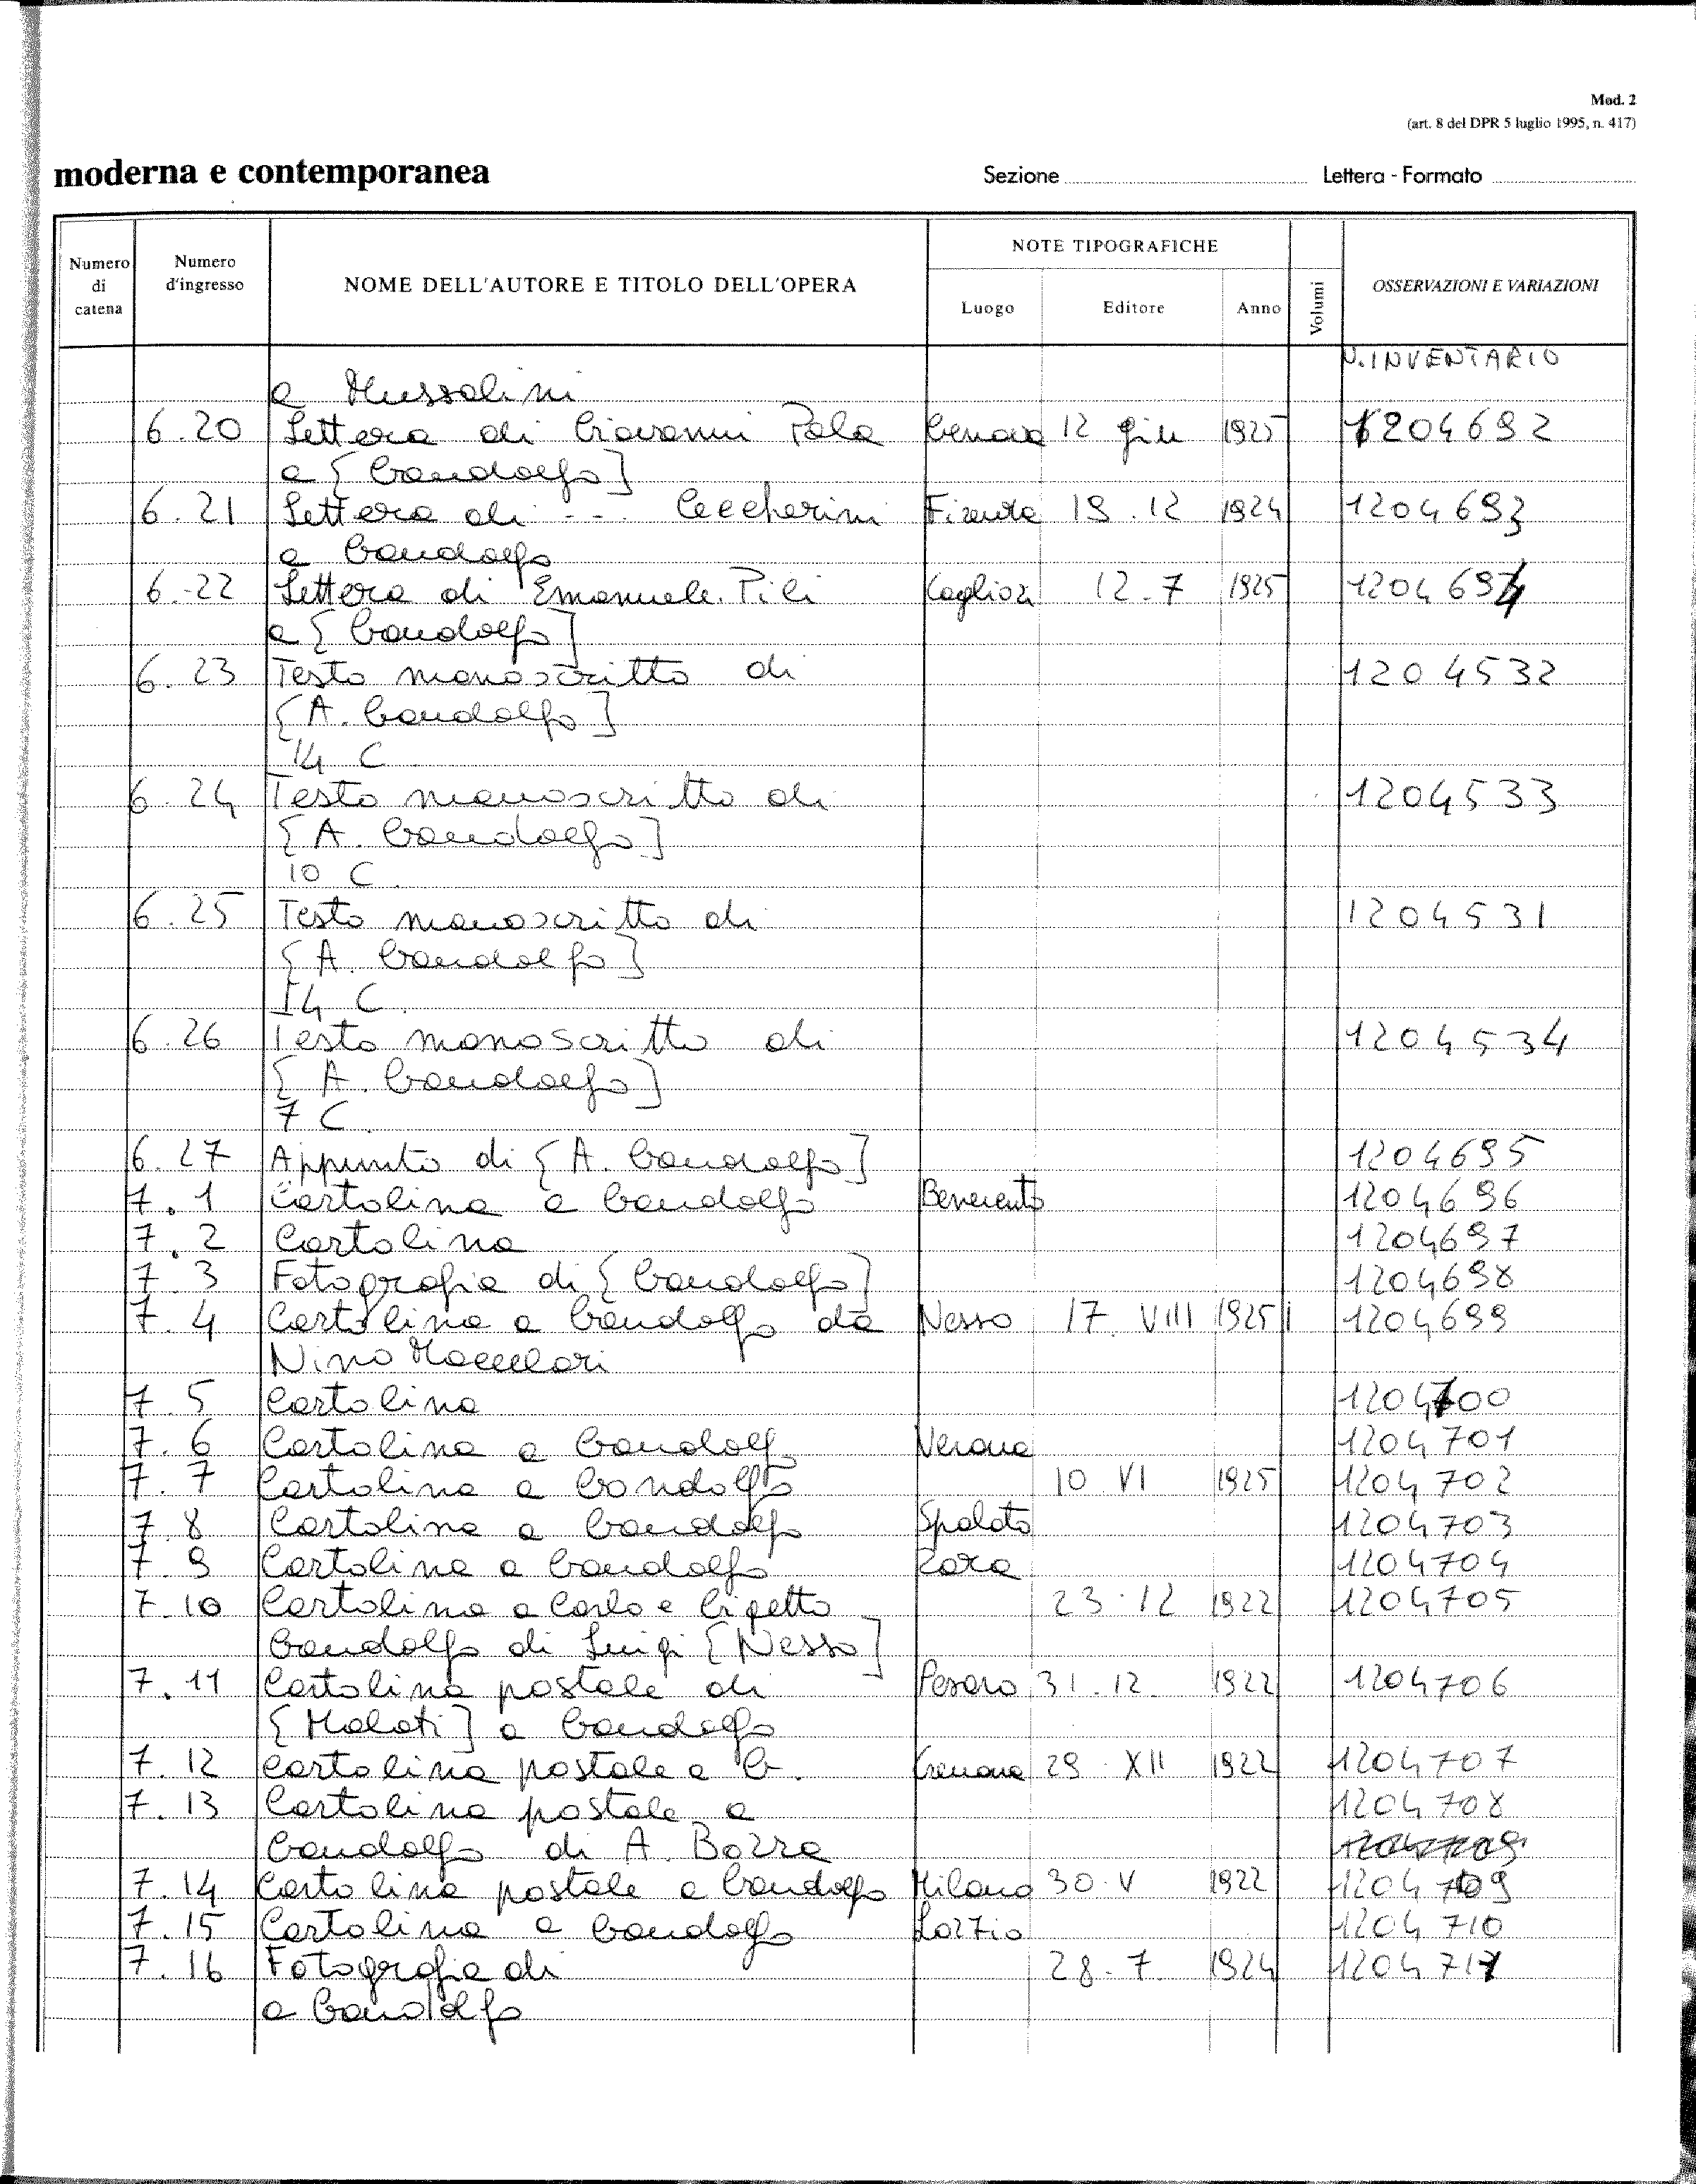 Mod. 2
(art. 8 del DPR 5 luglio 1995, n. 417)
moderna e contemporanea Sezione Lettera - Formato
Numero di catena
Numero d'ingresso
NOME DELL'AUTORE E TITOLO DELL'OPERA
NOTE TIPOGRAFICHE
Luogo Editore Anno
Volumi
OSSERVAZIONI E VARIAZIONI
N. INVENTARIO
a Mussolini
6.20 Lettera di Giovanni Pala Genova 12 giu 1925 1204692
a [Gandolfo]
6.21 Lettera di --- Ceccherini Firenze 19.12 1924 1204693
a Gandolfo
6.22 Lettera di Emanuele Pili Cagliari 12.7 1925 1204694
a [Gandolfo]
6.23 Testo manoscritto di 1204532
[A. Gandolfo]
14 C
6.24 Testo manoscritto di 1204533
[A. Gandolfo]
10 C.
6.25 Testo manoscritto di 1204531
[A. Gandolfo]
14 C.
6.26 Testo manoscritto di 1204534
[A. Gandolfo]
7 C.
6.27 Appunto di [A. Gandolfo] 1204695
7.1 Cartolina a Gandolfo Benevento 1204696
7.2 Cartolina 1204697
7.3 Fotografia di [Gandolfo] 1204698
7.4 Cartolina a Gandolfo da Nesso 17 VIII 1925 1204699
Nino
7.5 Cartolina 1204700
7.6 Cartolina a Gandolf Verona 1204701
7.7 Cartolina a Gandolfo 10 VI 1925 1204702
7.8 Cartolina a Gandolfo Spalato 1204703
7.9 Cartolina a Gandolfo 1204704
7.10 Cartolina a Carlo e Gigetto 23.12 1922 1204705
Gandolfo di Luigi [Nesso]
7.11 Cartolina postale di Pesaro 31.12. 1922 1204706
[Malati] a Gandolfo
7.12 Cartolina postale a G. Cremona 29 XII 1922 1204707
7.13 Cartolina postale a 1204708
Gandolfo di A. Bozza
7.14 Cartolina postale a Gandolfo Milano 30.V 1922 1204709
7.15 Cartolina a Gandolfo 1204710
7.16 Fotografia di 28.7. 1924 1204711
a Gandolfo